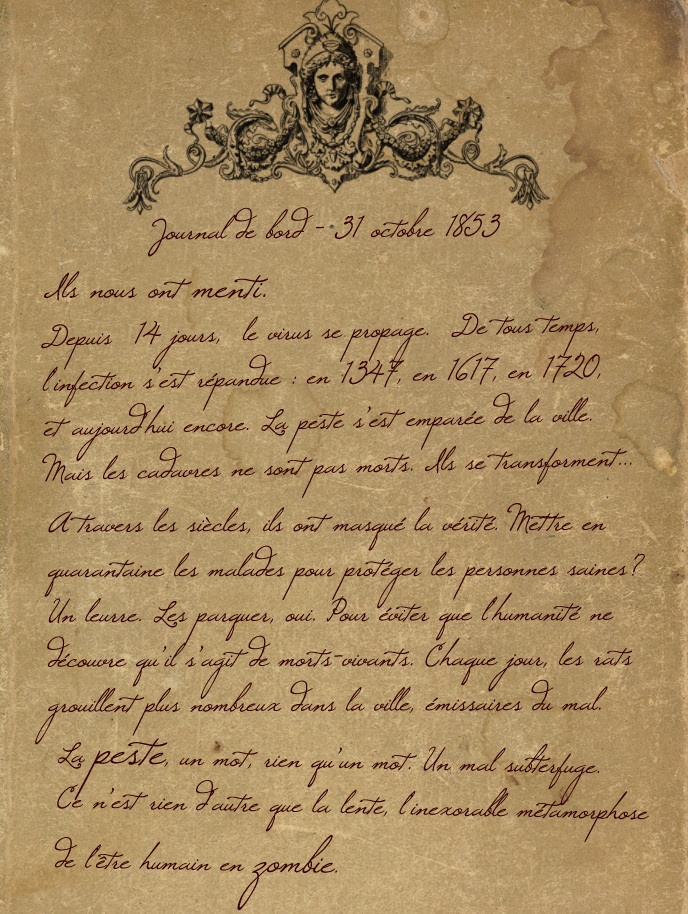 Journal de bord - 31 octobre 1853
Ils nous ont menti.
Depuis 14 jours, le virus se propage. De tous temps,
l'infection s'est répandue : en 1347, en 1617, en 1720,
et aujourd'hui encore. La peste s'est emparée de la ville.
Mais les cadavres ne sont pas morts. Ils se transforment...
A travers les siècles, ils ont masqué la vérité. Mettre en
quarantaine les malades pour protéger les personnes saines?
Un leurre. Les parquer, oui. Pour éviter que l'humanité ne
découvre qu'il s'agit de morts-vivants. Chaque jour, les rats
grouillent plus nombreux dans la ville, émissaires du mal.
La peste, un mot, rien qu'un mot. Un mal subterfuge.
Ce n'est rien d'autre que la lente, l'inexorable métamorphose
de l'être humain en zombie.